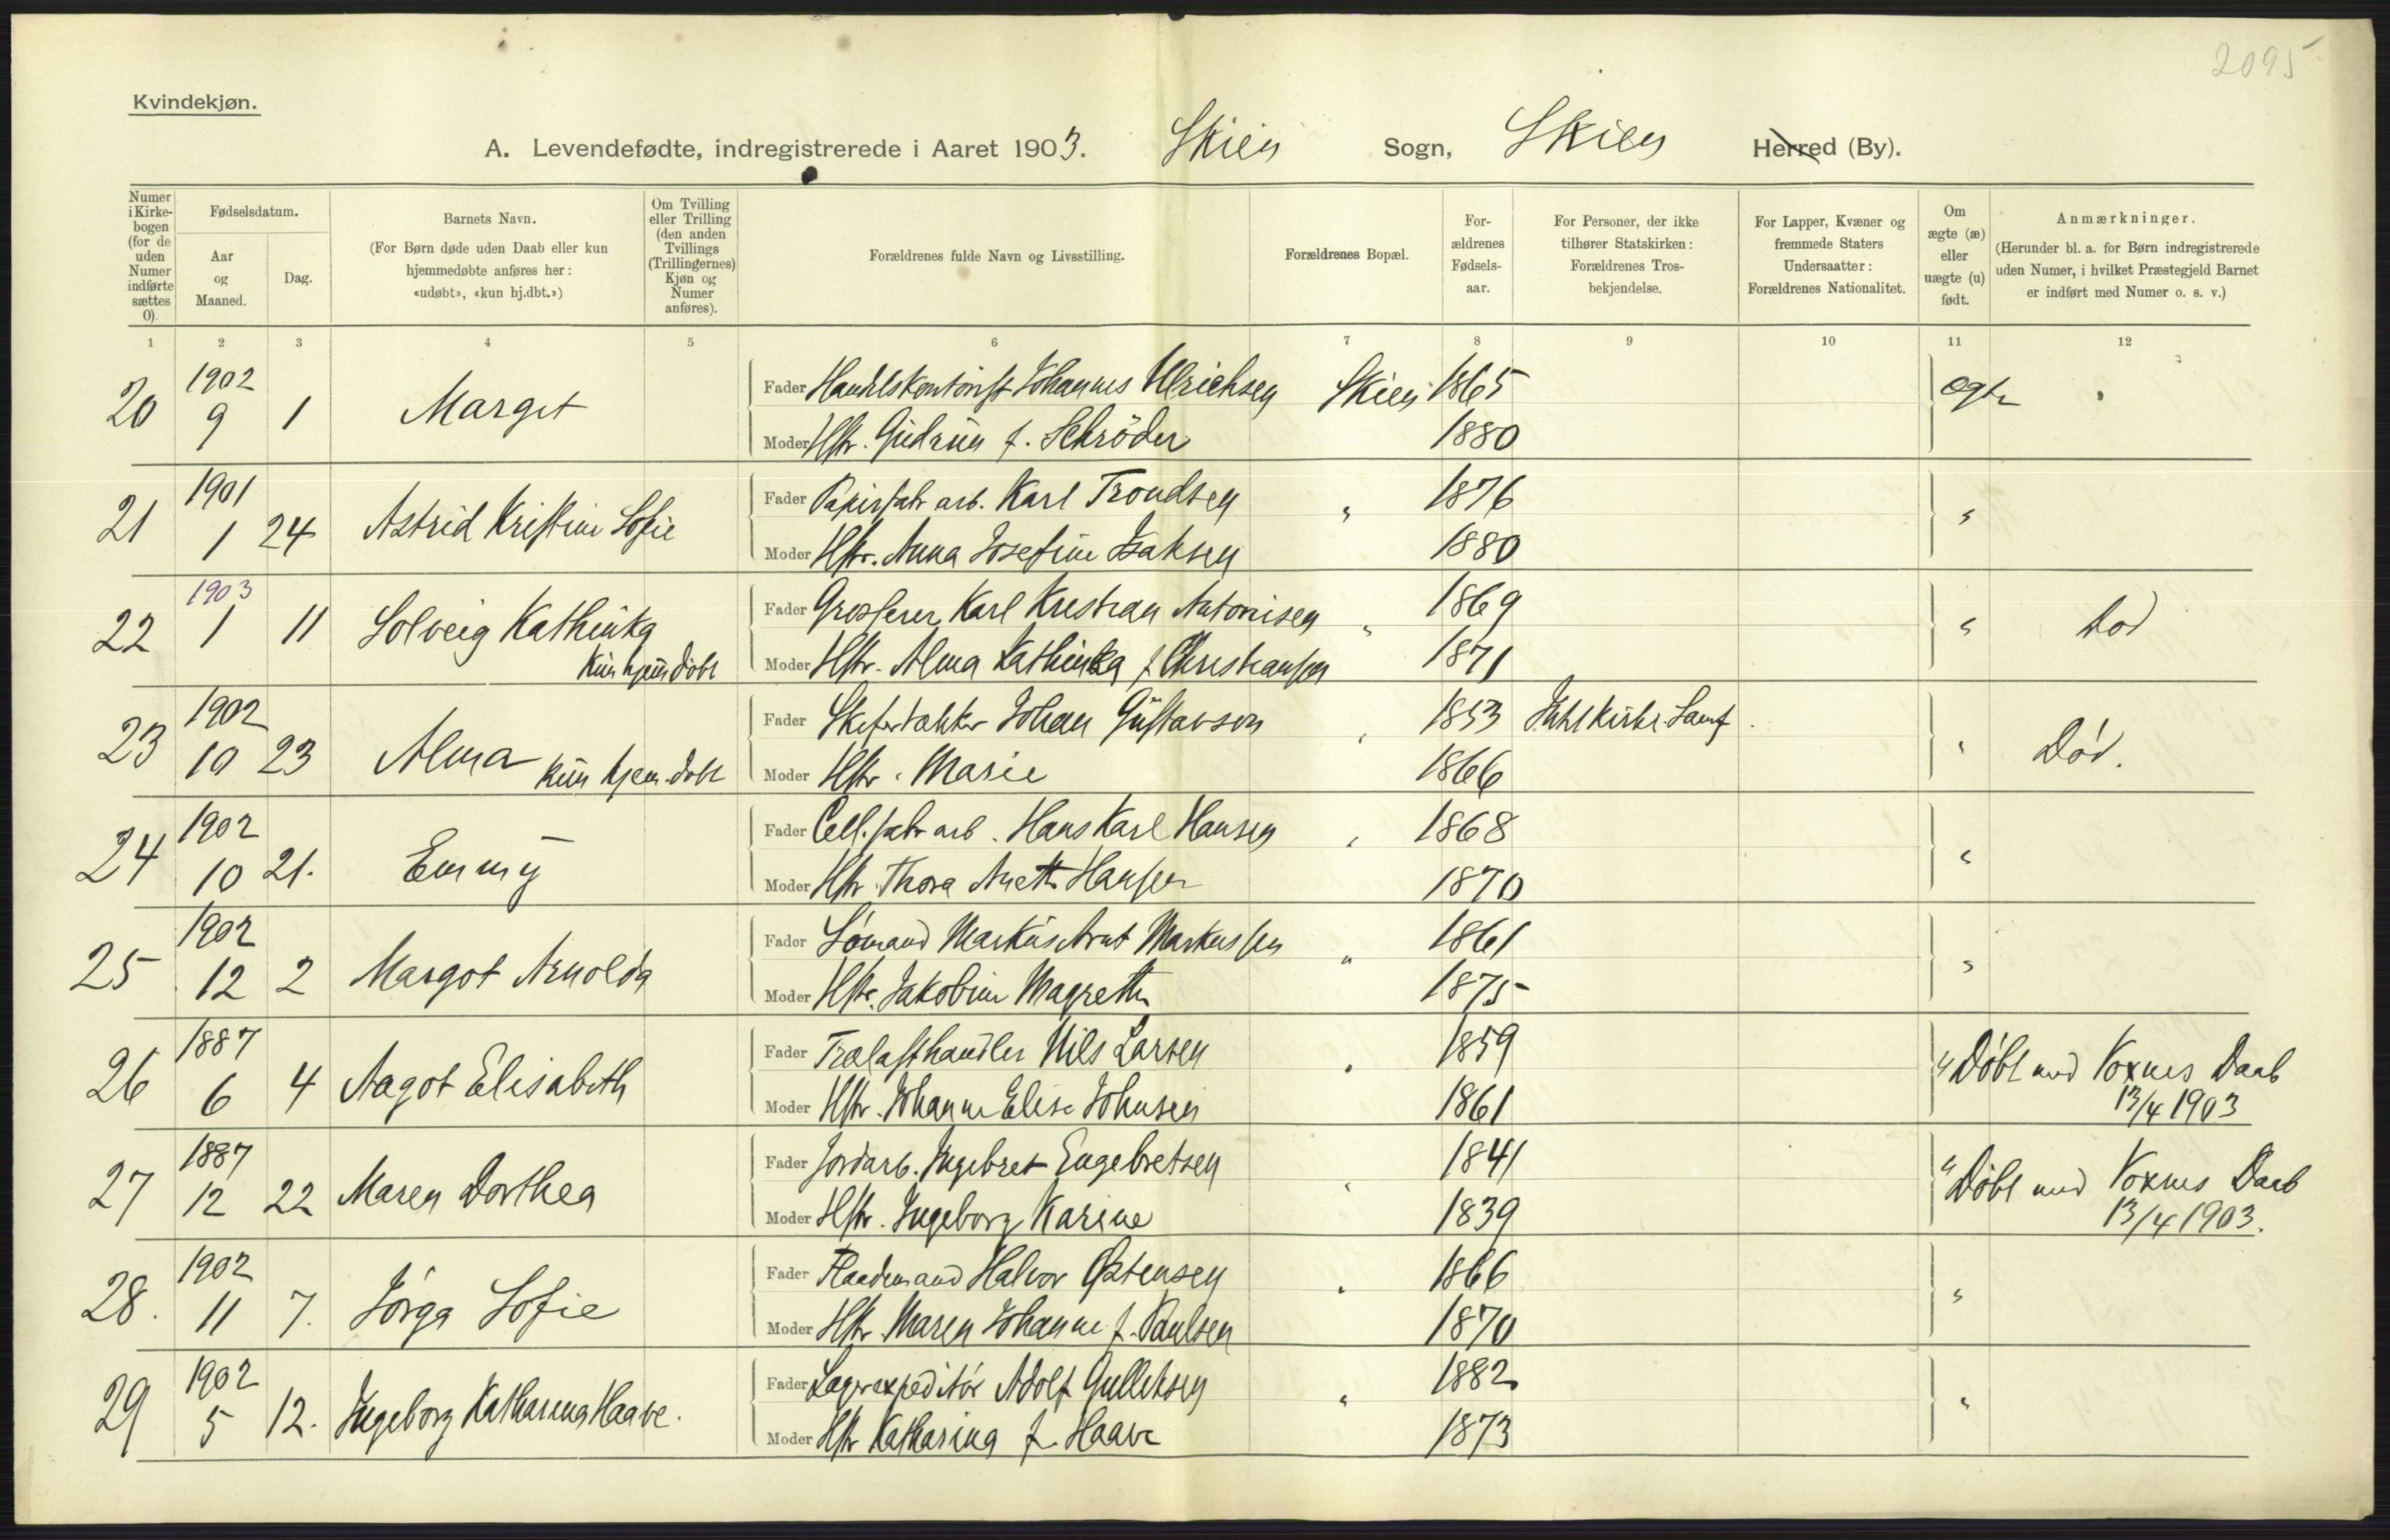 2095
Kvindekjøn.
A. Levendefødte, indregistrerede i Aaret 1903. Skien Sogn, Skien Herred (By).
Numer i Kirkebogen (for de uden Numer indførte sættes 0).
Fødselsdatum.
Aar og Maaned.
Dag.
Barnets Navn.
(For Børn døde uden Daab eller kun
hjemmedøbte anføres her:
«udøbt», «kun hj.dbt.»)
Om Tvilling
eller Trilling
(den anden
Tvillings
(Trillingernes)
Kjøn og
Numer
anføres).
Forældrenes fulde Navn og Livsstilling.
Forældrenes Bopæl.
For-
ældrenes
Fødsels-
aar.
For Personer, der ikke
tilhører Statskirken:
Forældrenes Tros-
bekjendelse.
For Lapper, Kvæner og
fremmede Staters
Undersaatter:
Forældrenes Nationalitet.
Om
ægte (æ)
eller
uægte (u)
født.
Anmærkninger.
(Herunder bl. a. for Børn indregistrerede
uden Numer, i hvilket Præstegjeld Barnet
er indført med Numer o. s. v.)
1 2 3 4 5 6 7 8 9 10 11 12
20 1902 9 1 Marget
Fader Handelskontorist Johannes Ulrichsen Skien 1865 ægte
Moder Hstr. Gudrun f. Schröder 1880
21 1901 1 24 Astrid Kristine Sofie
Fader Papirfabr arb. Karl Trondsen " 1876 "
Moder Hstr. Anna Josefine Isaksen 1880
22 1903 1 11 Solveig Kathinka
kun hjemdøbt
Fader Grosserer Karl Kristian Antonisen " 1869 " Død
Moder Hstr. Alma Kathinka f. Christiansen 1871
23 1902 10 23 Alma kun hjem.døbt
Fader Skifertækker Johan Gustavson " 1853 " Død.
Moder Hstr. Marie 1866
24 1902 10 21. Emmy
Fader Cell.fabr arb. Hans Karl Hansen " 1868 "
Moder Hstr. Thora Anette Hansen 1870
25 1902 12 2 Margot Arnolda
Fader Sømand Markus Arnt Markussen " 1861 "
Moder Hstr. Jakobine Magrethe 1875
26 1887 6 4 Aagot Elisabeth
Fader Trælasthandler Nils Larsen " 1859 " Døbt med Voxnes Daab
13/4 1903
Moder Hstr. Johanne Elise Johnsen 1861
27 1887 12 22 Maren Dorthea
Fader Jordarb. Ingebret Engebretsen " 1841 " Døbt med Voxnes Daab
13/4 1903.
Moder Hstr. Ingeborg Karine 1839
28. 1902 11 7. Sofie
Fader Flaademand Halvor Østensen " 1866 "
Moder Hstr. Maren Johanne f. Paulsen 1870
29 1902 5 12. Ingeborg Katharina Haave.
Fader Lagerexpeditør Adolf Gulliksen " 1882 "
Moder Hstr Katharina f. Haave 1873